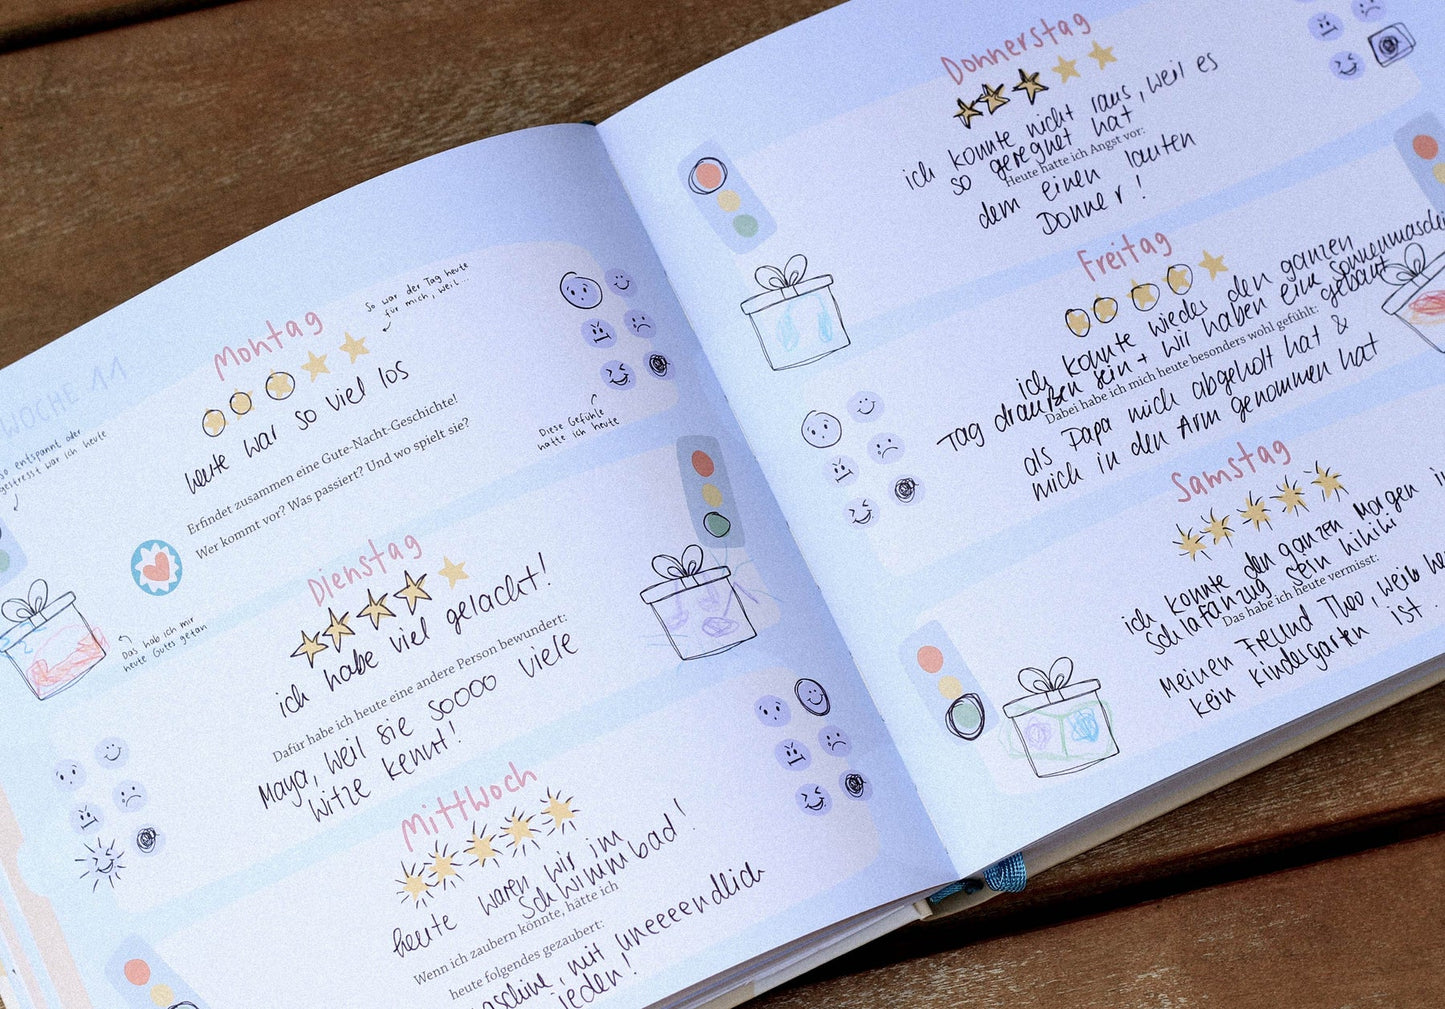 WOCHE 11
so entspannt oder
gestresst war ich heute
Montag
So war der Tag heute
für mich, weil...
heute war so viel los
Erfindet zusammen eine Gute-Nacht-Geschichte!
Wer kommt vor? Was passiert? Und wo spielt sie?
Diese Gefühle
hatte ich heute
Das hab ich mir
heute Gutes getan
Dienstag
ich habe viel gelacht!
Dafür habe ich heute eine andere Person bewundert:
Maya, weil sie soooo viele
Witze kennt!
Mittwoch
heute waren wir im
Schwimmbad!
Wenn ich zaubern könnte, hätte ich
heute folgendes gezaubert:
mit uneeeendlich
Donnerstag
ich konnte nicht raus, weil es
so geregnet hat
Heute hatte ich Angst vor:
dem einen lauten
Donner!
Freitag
ich konnte wieder den ganzen
Tag draußen sein + wir haben eine
gebaut
Dabei habe ich mich heute besonders wohl gefühlt:
als Papa mich abgeholt hat &
mich in den Arm genommen hat
Samstag
ich konnte den ganzen Morgen
Schlafanzug sein hihihi
Das habe ich heute vermisst:
Meinen Freund Theo,
kein Kindergarten ist.